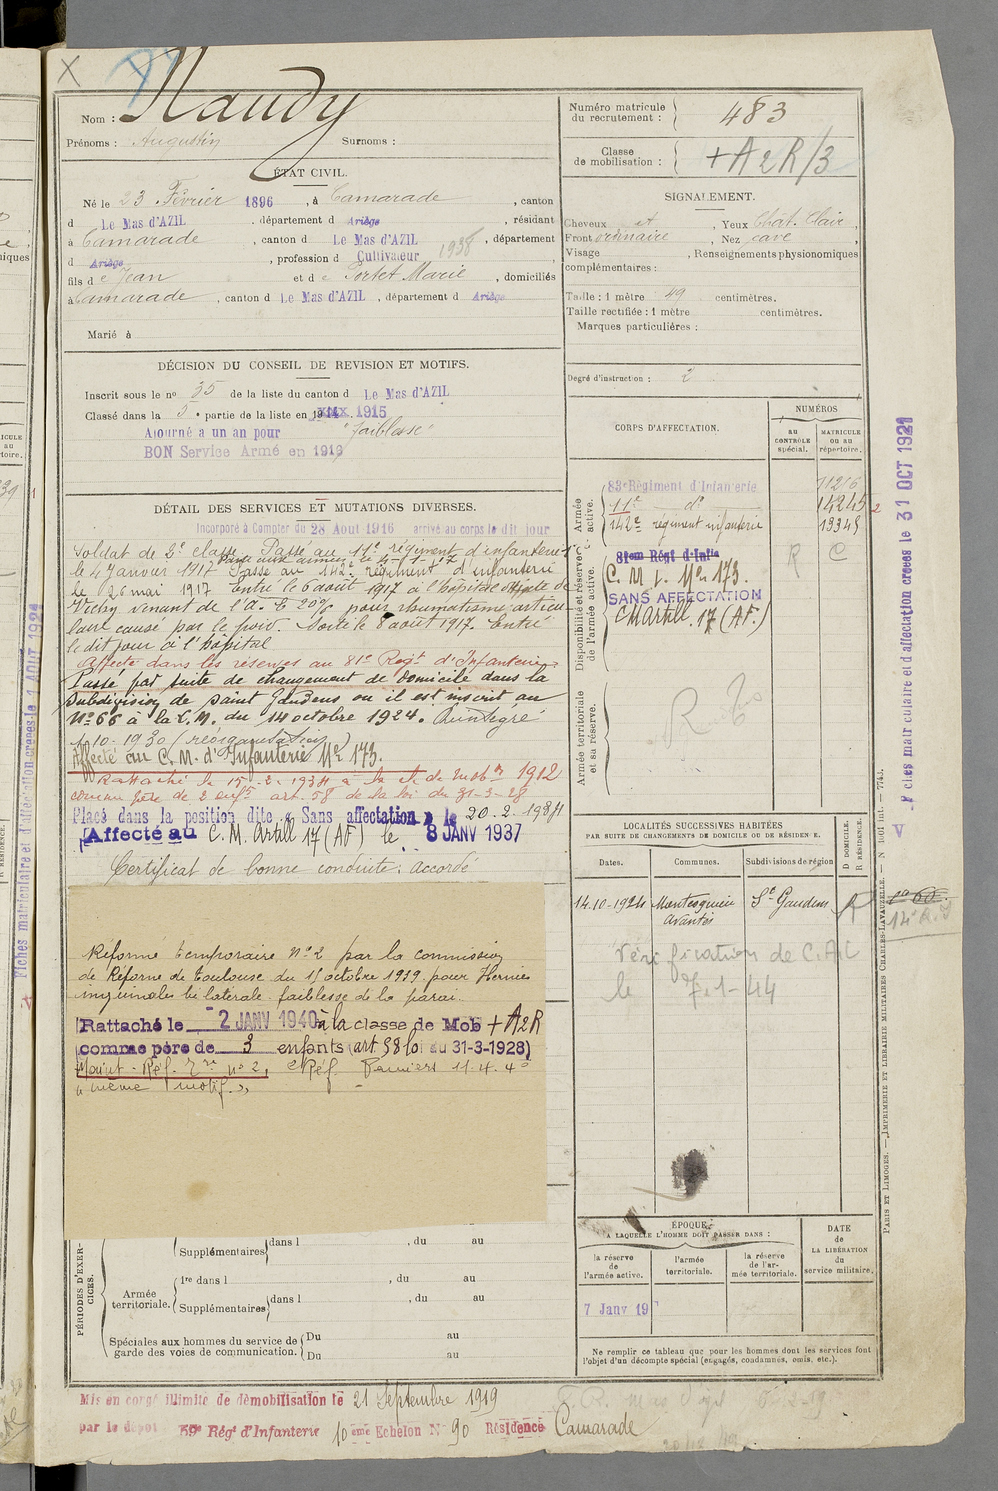 X
Nom : Naudy
Prénoms : Augustin Surnoms :
ÉTAT CIVIL.
Né le 23 Février 1896, à Camarade, canton
d Le Mas d'AZIL, département d Ariège, résidant
à Camarade, canton d Le Mas d'AZIL, département
d Ariège, profession d Cultivateur 1938
fils de Jean et de Portet Marie, domiciliés
à Camarade, canton d Le Mas d'AZIL, département d Ariège
Marié à
DÉCISION DU CONSEIL DE REVISION ET MOTIFS.
Inscrit sous le nº 35 de la liste du canton d Le Mas d'AZIL
Classé dans la 5e partie de la liste en 1915
Ajourné a un an pour "faiblesse"
BON Service Armé en 1919
DÉTAIL DES SERVICES ET MUTATIONS DIVERSES.
Incorporé à Compter du 28 Aout 1916 arrivé au corps le dit jour
Soldat de 2e classe. Passé au 11e régiment d'infanterie
le 4 Janvier 1917 Passé au 142e régiment d'infanterie
le 26 mai 1917 Entré le 6 août 1917 à l'hôpital mixte de
Vichy venant de l'A. E 20% pour rhumatisme articu-
laire causé par le froid. Sorti le 8 août 1917. Entré
le dit jour à l'hôpital
Affecté dans les réserves au 81e Régt d'Infanterie
Passé par suite de changement de domicile dans la
subdivision de Saint Gaudens où il est inscrit au
Nº 66 à la C.M. du 14 octobre 1924. Réintégré
1-10-1930 (réorganisation)
Affecté au C.M. d'Infanterie Nº 173.
Rattaché le 15-2-1934 à la cl. de mobon 1912
comme père de 2 enfts art. 58 de la loi du 31-3-28
Placé dans la position dite « Sans affectation » le 20.2.1934
Affecté au C.M. Artill 17 (AF) le 8 JANV 1937
Certificat de bonne conduite : accordé
Réformé temporaire Nº 2 par la commission
de Réforme de Toulouse du 11 octobre 1939 pour Hernies
inguinales bilatérale faiblesse de la paroi.
Rattaché le 2 JANV 1940 à la classe de Mob + A2R
comme père de 3 enfants (art. 58 loi du 31-3-1928)
Maint. Réf. Tre nº 2, Réf. Pamiers 11.4.40
à même motif.»
PÉRIODES D'EXERCICES.
Supplémentaires dans l , du au
Armée territoriale.
1re dans l , du au
Supplémentaires dans l , du au
Spéciales aux hommes du service de garde des voies de communication.
Du au
Du au
Mis en congé illimité de démobilisation le 21 Septembre 1919
par le dépôt 59e Rég' d'Infanterie 10ème Echelon Nº 90 Résidence Camarade
Numéro matricule du recrutement : 483
Classe de mobilisation : + A2R/3
SIGNALEMENT.
Cheveux , Yeux Chât. Clair,
Front ordinaire, Nez cave,
Visage , Renseignements physionomiques
complémentaires :
Taille : 1 mètre 49 centimètres.
Taille rectifiée : 1 mètre centimètres.
Marques particulières :
Degré d'instruction : 2
CORPS D'AFFECTATION.
NUMÉROS
AU CONTRÔLE spécial.
MATRICULE ou au répertoire.
Armée active.
83e Régiment d'Infanterie 11216
11e dº 14245
142e régiment infanterie 13345
Disponibilité et réserve de l'armée active.
81eme Régt d'Inftie R C
C.M. I. Nº 173.
SANS AFFECTATION
CM Artill. 17 (AF.)
Armée territoriale et sa réserve.
LOCALITÉS SUCCESSIVES HABITÉES
PAR SUITE DE CHANGEMENTS DE DOMICILE OU DE RÉSIDENCE.
Dates. Communes. Subdivisions de région
D DOMICILE.
R RÉSIDENCE.
14.10-1924 Montesquieu Avantès St Gaudens R
Vérification de C.A.C
le 7.1-44
ÉPOQUE
A LAQUELLE L'HOMME DOIT PASSER DANS :
la réserve de l'armée active.
l'armée territoriale.
la réserve de l'armée territoriale.
DATE DE LA LIBÉRATION du service militaire.
7 Janv 19
Ne remplir ce tableau que pour les hommes dont les services font
l'objet d'un décompte spécial (engagés, condamnés, omis, etc.).
Fiches matriculaire et d'affectation créées le 31 OCT 1921
V
PARIS ET LIMOGES. — IMPRIMERIE ET LIBRAIRIE MILITAIRES CHARLES-LAVAUZELLE. —
Fiches matriculaire et d'affectation créées le 1 AOUT 1921